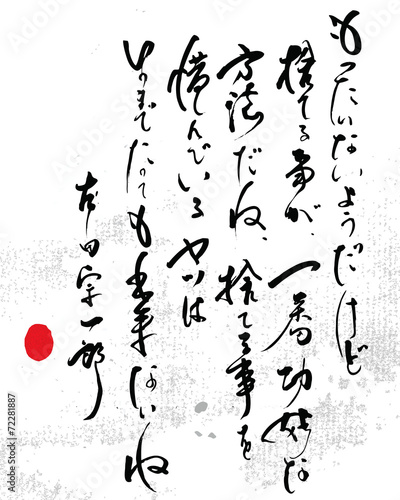 もったいないようだけど
捨てる事が、一番功妙な
方法だね、捨てる事を
惜しんでいるやつは
いつまでたっても出来ないね
本田宗一郎
Adobe Stock
72281887